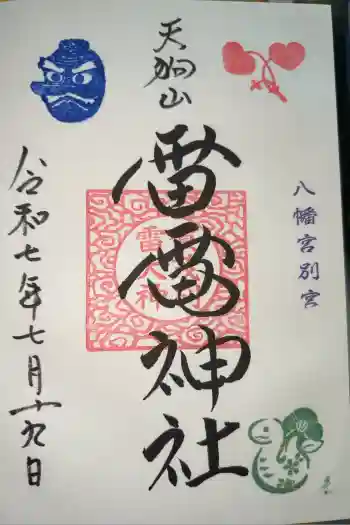 八幡宮別宮
天狗山
雷電神社
雷大神
令和七年七月十九日